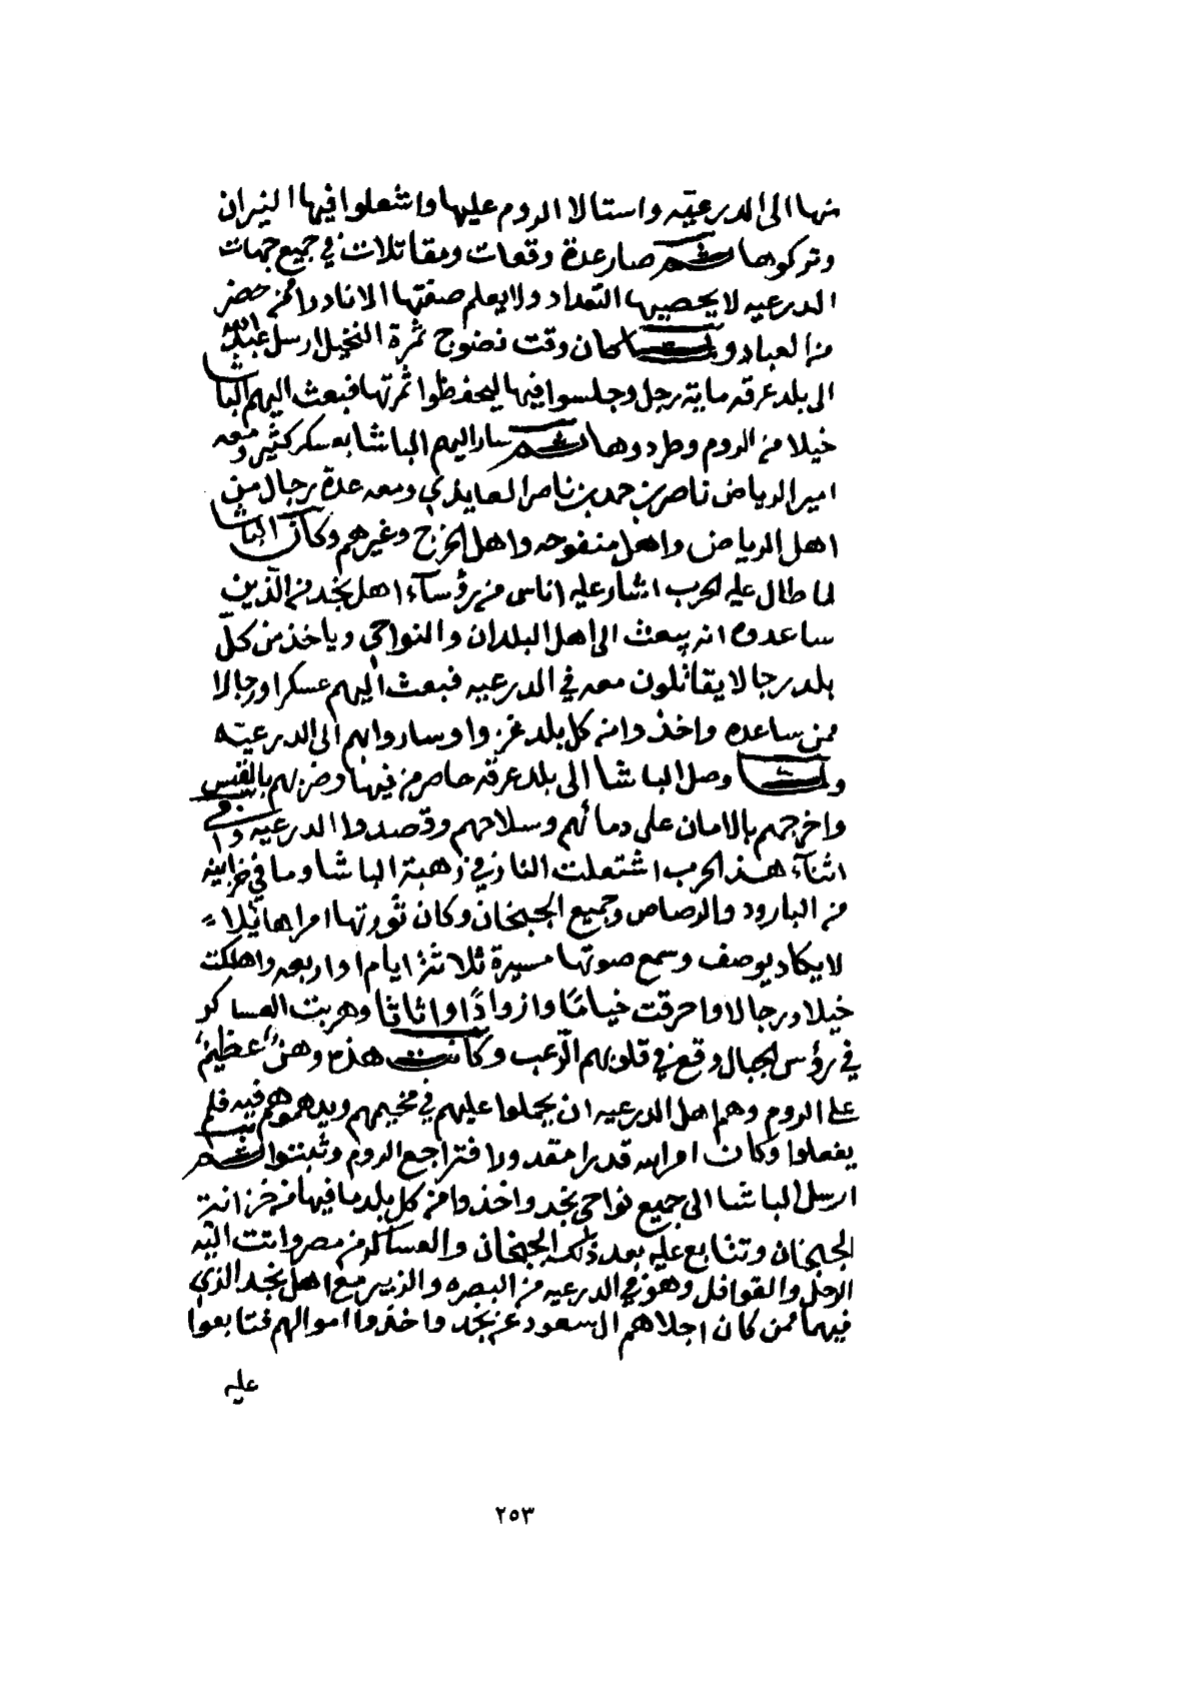 منها الى الدرعيه واستالا الروم عليها واشعلوا فيها النيران
وتركوها ثم صار عدة وقعات ومقاتلات في جميع جهات
الدرعيه لا يحصيها التعداد ولا يعلم صفتها الا نادرا ممن حضر
من العباد ولما كان وقت نضوج ثمرة النخيل ارسل عبدالله
الى بلد عرقه ماية رجل وجلسوا فيها ليحفظوا ثمرتها فبعث اليهم الباشا
خيلا من الروم وطردوها ثم سار اليهم الباشا بعسكر كثير ومعه
امير الرياض ناصر بن حمد بن ناصر العايذي ومعه عدة رجال من
اهل الرياض واهل منفوحه واهل الخرج وغيرهم وكان الباشا
لما طال عليه الحرب اشار عليه اناس من رؤسآء اهل نجد من الذين
ساعدوه انه يبعث الى اهل البلدان والنواحي وياخذ من كل
بلد رجالا يقاتلون معه في الدرعيه فبعث اليهم عسكرا ورجالا
ممن ساعده واخذوا من كل بلد غزوا وساروا بهم الى الدرعيه
ولما وصل الباشا الى بلد عرقه حاصر من فيها وضربهم بالقبس
واخرجهم بالامان على دمائهم وسلاحهم وقصدوا الدرعيه وفي
اثنآء هذا الحرب اشتعلت النار في زهبة الباشا وما في خزاينه
من البارود والرصاص وجميع الجبخان وكان ثورتها امرا هائلا
لا يكاد يوصف وسمع صوتها مسيرة ثلاثة ايام او اربعه واهلكت
خيلا ورجالا واحرقت خياما وازوادا واثاثا وهربت العساكر
في رؤس الجبال ووقع في قلوبهم الرعب وكانت هذه وهن عظيم
على الروم وهم اهل الدرعيه ان يحملوا عليهم في مخيمهم ويدهموهم فيه فلم
يفعلوا وكان امر الله قدرا مقدورا فتراجع الروم وثبتوا ثم
ارسل الباشا الى جميع نواحي نجد واخذوا من كل بلد ما فيها من خزانة
الجبخان وتتابع عليه بعد ذلك الجبخان والعساكر من مصر واتت اليه
الرحل والقوافل وهو في الدرعيه من البصره والزبير مع اهل نجد الذي
فيهما ممن كان اجلاهم ال سعود عن نجد واخذوا اموالهم فتابعوا
عليه
٢٥٣